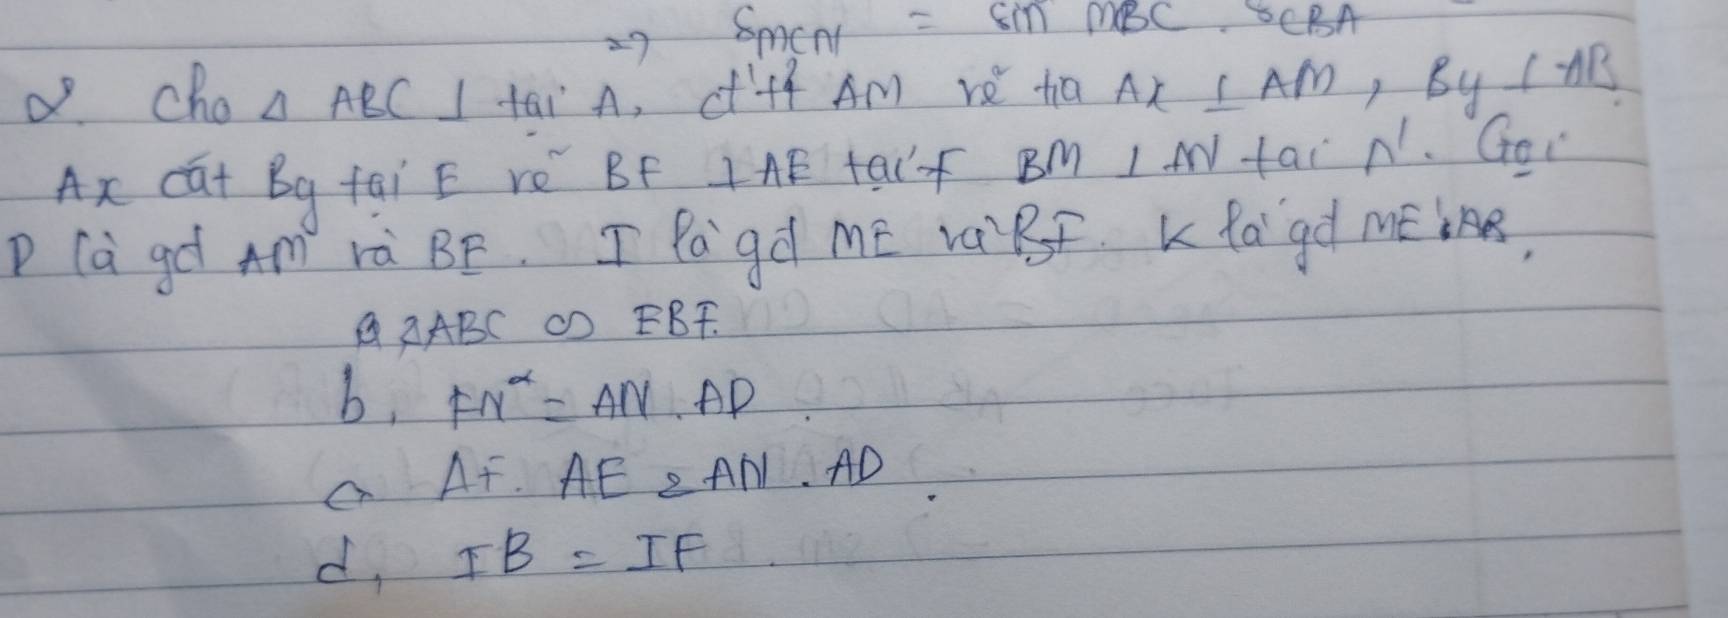 => SMCN = sin MBC . SCBA
2. Cho Δ ABC ⊥ tại A, đ'tt² AM vẽ tia Ax ⊥ AM, By ⊥ AB
Ax cắt By tại E vẽ BF ⊥ AE tại F BM ⊥ AN tại N. Gọi
D là gđ AM và BE. I là gđ ME và BF. K là gđ ME AB.
a, ABC ∽ EBF.
b, FN² = AN . AD.
c, AF. AE = AN . AD.
d, IB = IF.